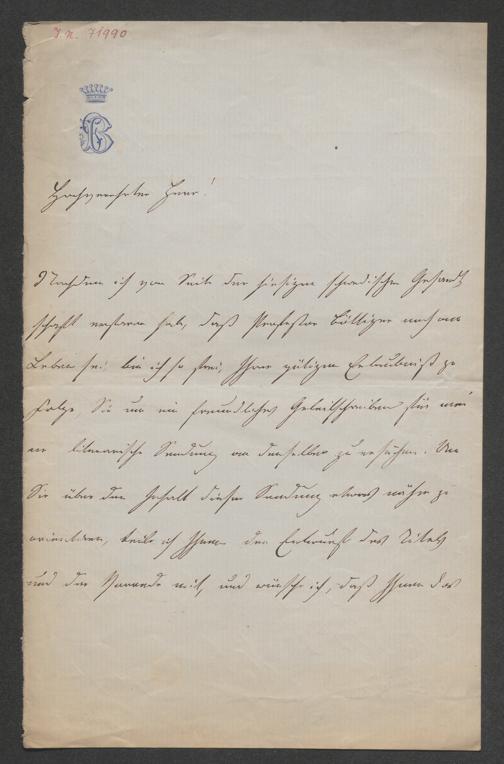 J.N. 71990
Hochverehrter Herr!
Nachdem ich von Seite der hiesigen schwedischen Gesandt
schaft erfahren habe, daß Professor Böttiger noch am
Leben sei, bin ich so frei, Ihrer gütigen Erlaubniß zu
Folge Sie um ein freundliches Geleitschreiben für mei
ne literarische Sendung an denselben zu ersuchen. Um
Sie über den Inhalt dieser Sendung etwas näher zu
orientiren, teile ich Ihnen den Entwurf des Titels
und der Vorrede mit, und wünsche ich, daß Ihnen das